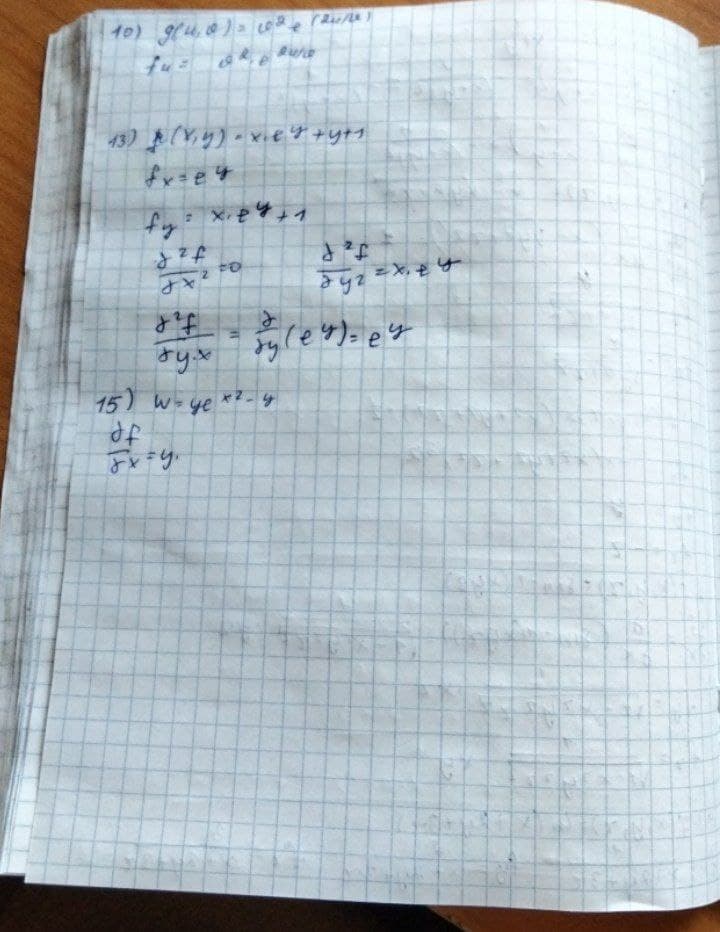 10) g(u,v) = v² e^(2u/v)
fu = v² · e^2u/v
13) f(x,y) = x·e^y + y+1
fx = e^y
fy = x·e^y + 1
∂²f/∂x² = 0    ∂²f/∂y² = x·e^y
∂²f/∂y·x = ∂/∂y (e^y) = e^y
15) w = ye^x²-y
∂f/∂x = y·